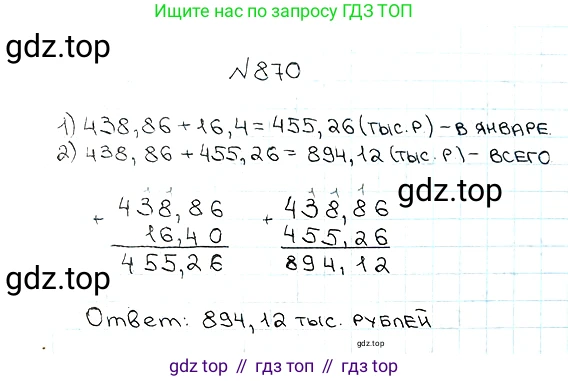 Ищите нас по запросу ГДЗ ТОП
gdz.top
№870
1) 438,86 + 16,4 = 455,26 (тыс.р.) - в январе.
2) 438,86 + 455,26 = 894,12 (тыс.р) - всего
1 1 1 1 1
+ 438,86 + 438,86
gdz.top
16,40 455,26
455,26 894,12
gdz.top
Ответ: 894,12 тыс. рублей
gdz.top
gdz.top // гдз топ // гдз.топ